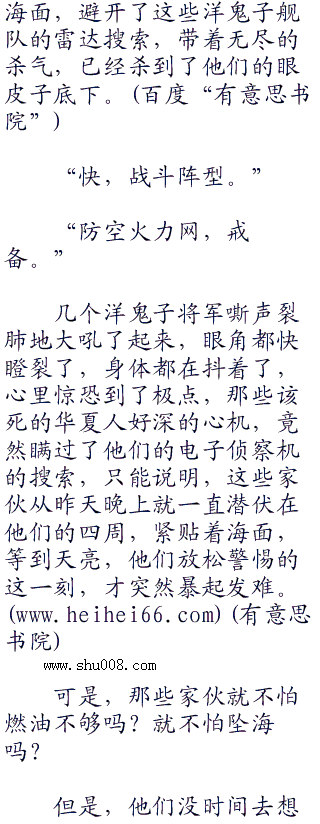 海面，避开了这些洋鬼子舰
队的雷达搜索，带着无尽的
杀气，已经杀到了他们的眼
皮子底下。(百度“有意思书
院”)
“快，战斗阵型。”
“防空火力网，戒
备。”
几个洋鬼子将军嘶声裂
肺地大吼了起来，眼角都快
瞪裂了，身体都在抖着了，
心里惊恐到了极点，那些该
死的华夏人好深的心机，竟
然瞒过了他们的电子侦察机
的搜索，只能说明，这些家
伙从昨天晚上就一直潜伏在
他们的四周，紧贴着海面，
等到天亮，他们放松警惕的
这一刻，才突然暴起发难。
(www.heihei66.com)(有意思
书院)
www.shu008.com
可是，那些家伙就不怕
燃油不够吗？就不怕坠海
吗？
但是，他们没时间去想